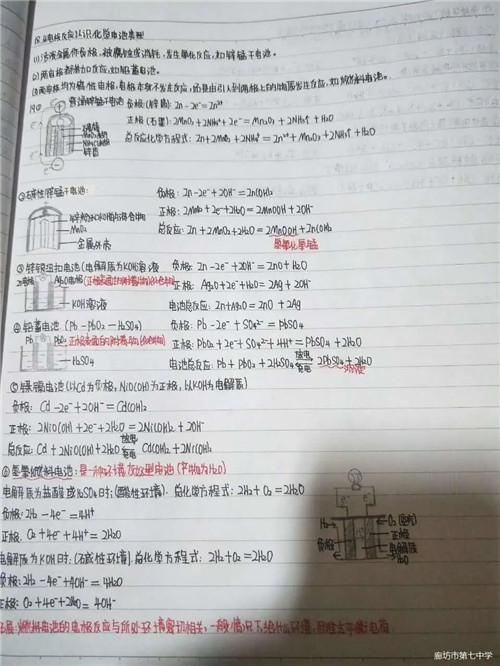 (1)活泼金属作负极,被腐蚀或消耗,发生氧化反应,如锌锰干电池。
(2)两电极都参加反应,如铅蓄电池。
(3)两电极均为惰性电极,电极本身不发生反应,而是由引入到两极上的物质发生反应,如燃料电池。
普通锌锰干电池 负极(锌筒): Zn-2e⁻=Zn²⁺
正极(石墨): 2MnO₂+2NH₄⁺+2e⁻=Mn₂O₃+2NH₃↑+H₂O
总反应化学方程式: Zn+2MnO₂+2NH₄⁺=Zn²⁺+Mn₂O₃+2NH₃↑+H₂O
石墨棒
锌筒
②碱性锌锰干电池:
负极: Zn-2e⁻+2OH⁻=Zn(OH)₂
正极: 2MnO₂+2e⁻+2H₂O=2MnOOH+2OH⁻
总反应: Zn+2MnO₂+2H₂O=2MnOOH+Zn(OH)₂
氢氧化氧锰
锌粉和KOH的混合物
MnO₂
金属外壳
③锌银纽扣电池(电解质为KOH溶液 负极: Zn-2e⁻+2OH⁻=ZnO+H₂O
Zn电极 Ag₂O电极
正极: Ag₂O+2e⁻+H₂O=2Ag+2OH⁻
KOH溶液 电池总反应: Zn+Ag₂O=ZnO+2Ag
④铅蓄电池(Pb-PbO₂-H₂SO₄) 负极: Pb-2e⁻+SO₄²⁻=PbSO₄
Pb PbO₂
正极: PbO₂+2e⁻+SO₄²⁻+4H⁺=PbSO₄+2H₂O
H₂SO₄ 电池总反应: Pb+PbO₂+2H₂SO₄ 放电 充电 2PbSO₄+2H₂O
⑤镍镉电池(以Cd为负极,NiO(OH)为正极,以KOH为电解质)
负极: Cd-2e⁻+2OH⁻=Cd(OH)₂
正极: 2NiO(OH)+2e⁻+2H₂O=2Ni(OH)₂+2OH⁻
总反应: Cd+2NiO(OH)+2H₂O 放电 充电 Cd(OH)₂+2Ni(OH)₂
⑥氢氧燃料电池:是一种环境友好型电池(产物为H₂O)
电解质为盐酸或H₂SO₄时:(酸性环境). 总化学方程式: 2H₂+O₂=2H₂O
负极: 2H₂-4e⁻=4H⁺
正极: O₂+4e⁻+4H⁺=2H₂O
电解质为KOH时:(碱性环境). 总化学方程式: 2H₂+O₂=2H₂O
负极: 2H₂-4e⁻+4OH⁻=4H₂O
正极: O₂+4e⁻+2H₂O=4OH⁻
e⁻ e⁻
H₂
负极
正极
电解质
燃料电池的电极反应与所处环境密切相关,
廊坊市第七中学